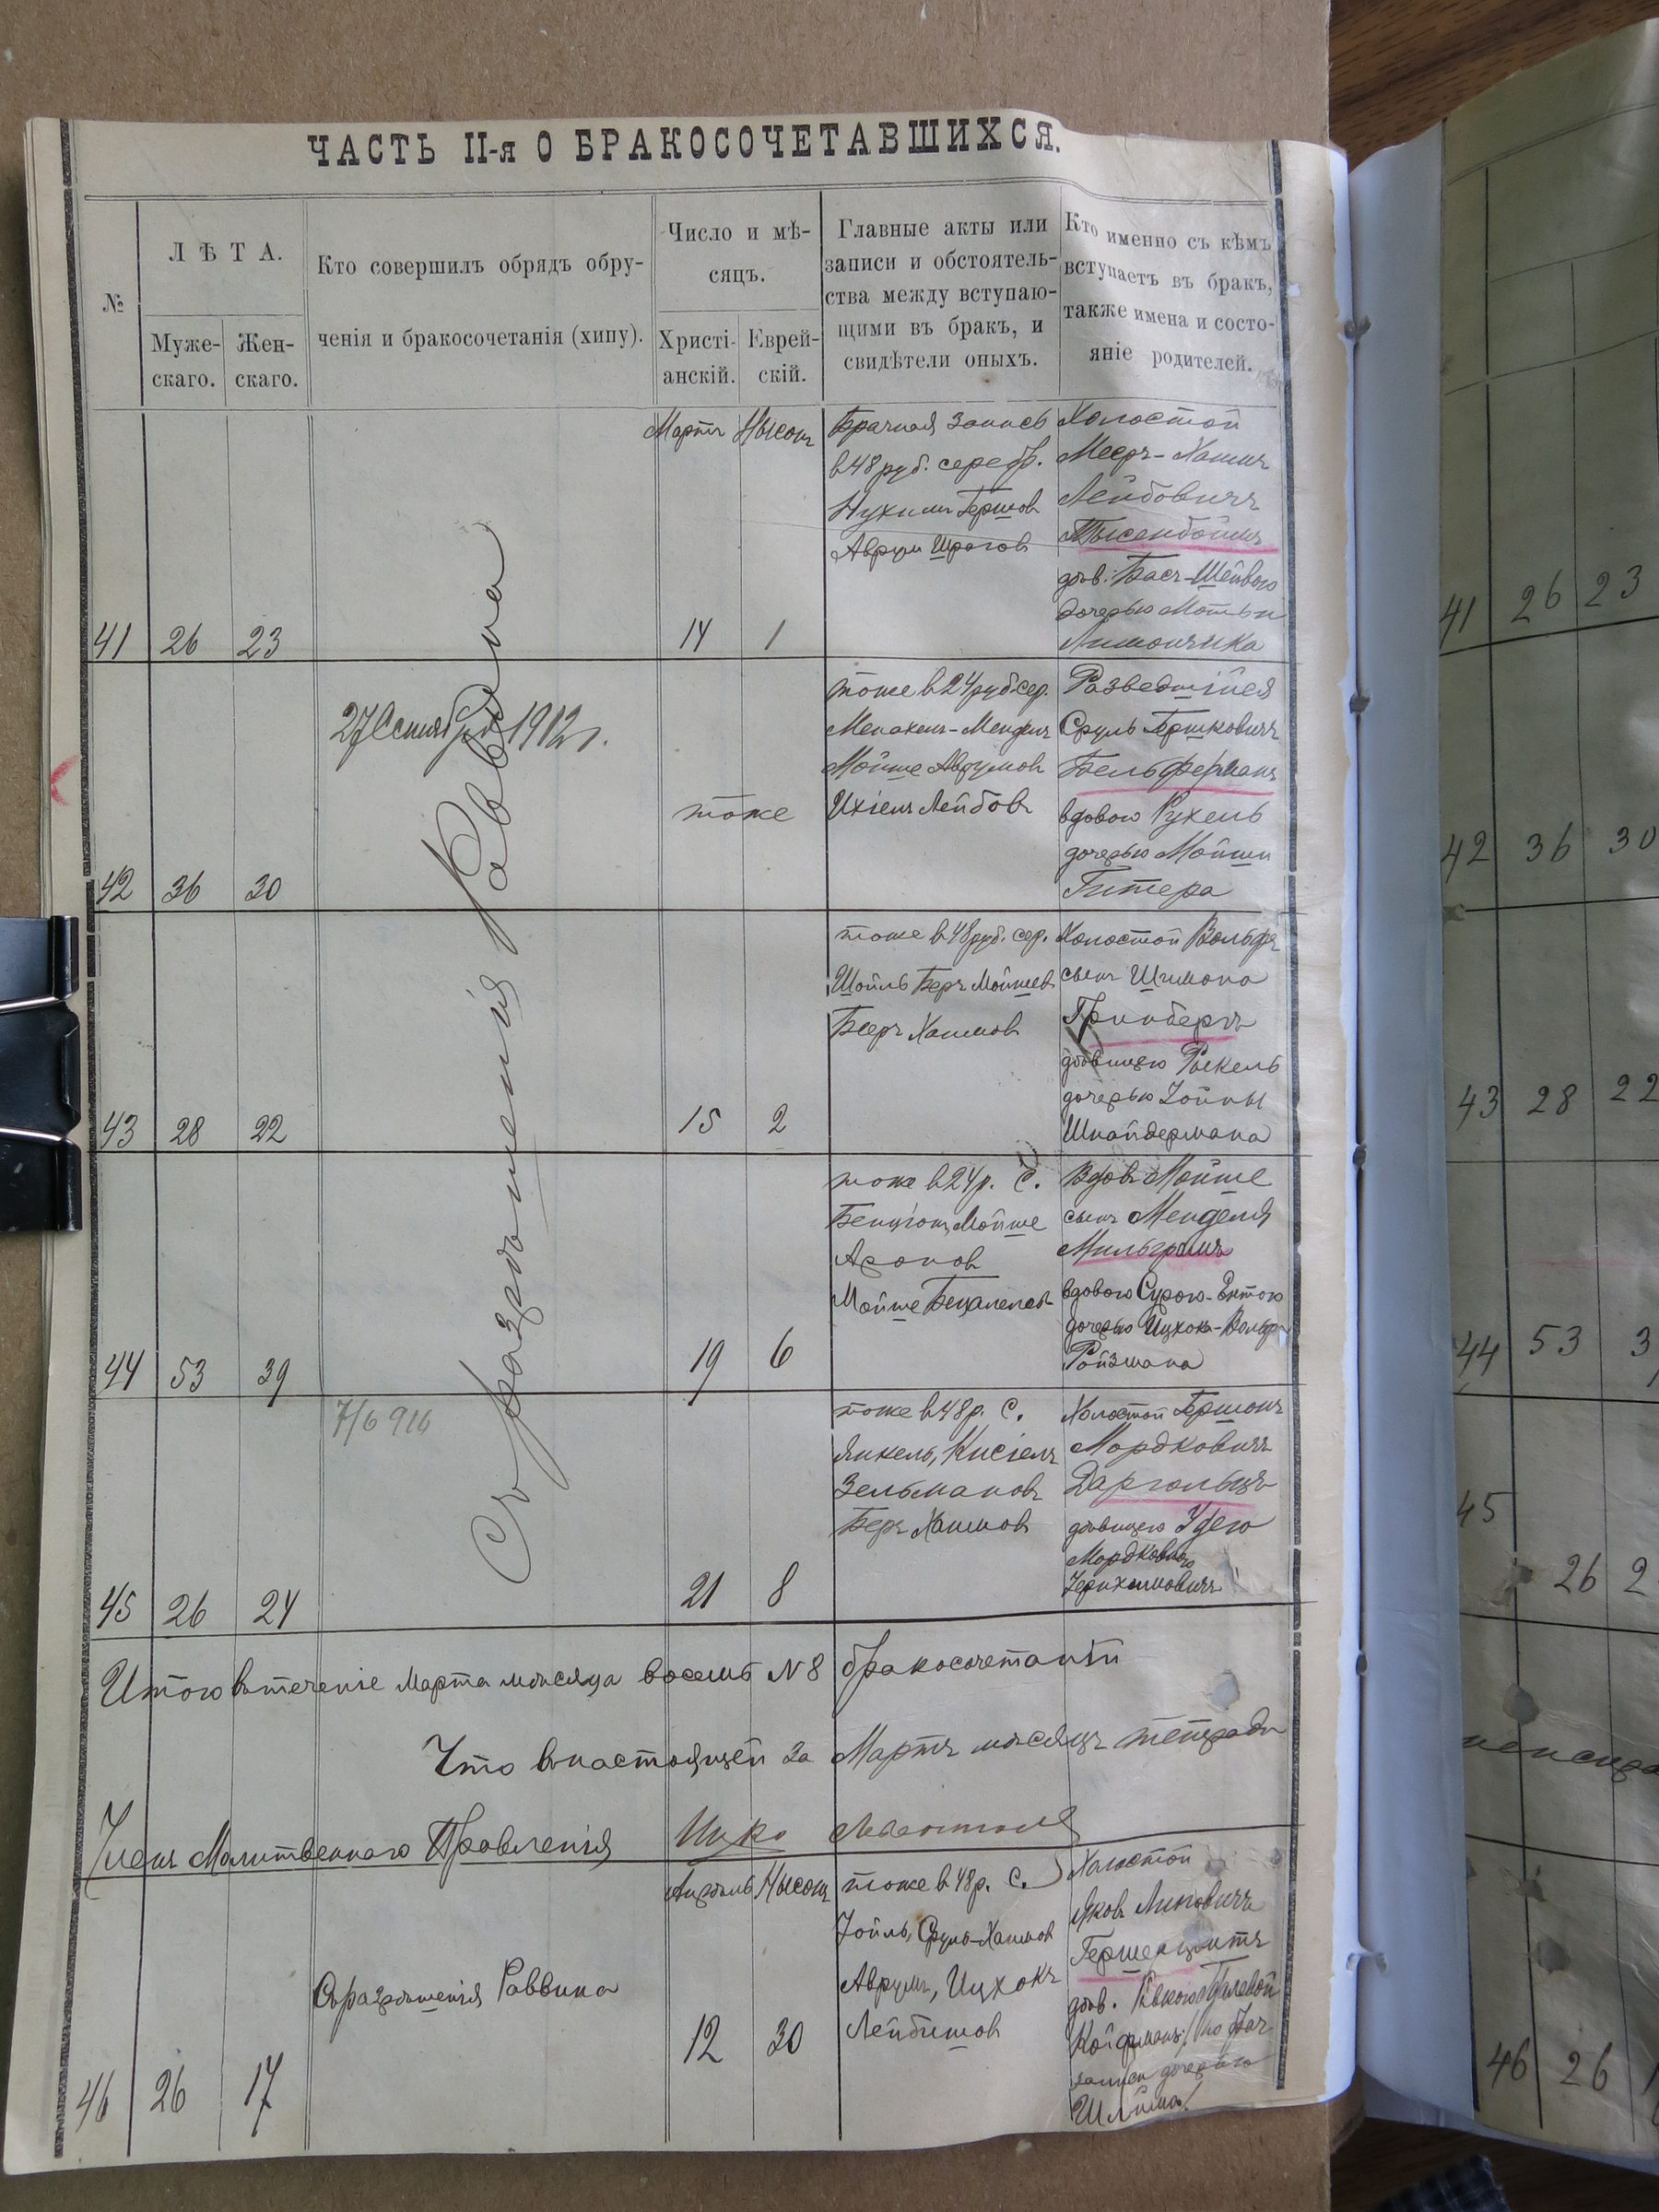 ЧАСТЬ II-я О БРАКОСОЧЕТАВШИХСЯ.
№
ЛѢТА.
Муже-
скаго.
Жен-
скаго.
Кто совершилъ обрядъ обру-
ченія и бракосочетанія (хипу).
Число и мѣ-
сяцъ.
Христі-
анскій.
Еврей-
скій.
Главные акты или
записи и обстоятель-
ства между вступаю-
щими въ бракъ, и
свидѣтели оныхъ.
Кто именно съ кѣмъ
вступаетъ въ бракъ,
также имена и состо-
яніе родителей.
Съ разрѣшенія Раввина
41 26 23
Мартъ Нысонъ
14 1
Брачная запись
в 48 руб. серебр.
Нухимъ Гершов
Аврум Шрагов
Холостой
Мееръ-Хаимъ
Лейбовичъ
дѣв. Бася-Шейвою
дочерью Мотьи
Лимончика
27 Сентября 1912 г.
42 36 30
тоже
тоже в 24 руб сер.
Менахемъ-Мендель
Мойше Аврумов
Ихіель Лейбовъ
Разведшійся
Сруль Гершковичъ
Бельферманъ
вдовою Рухель
дочерью Мойши
Гитера
43 28 22
15 2
тоже в 48 руб. сер.
Шойль Беръ Мойшев
Беръ Хаимов
Холостой Вольфъ
сынъ Шимона
Гринбергъ
дѣвицею Рыкель
дочерью Іойны
Шнайдермана
44 53 39
19 6
тоже в 24 р. с.
Бенціонъ, Мойше
Аронов
Мойше Бецалелев
Вдовъ Мойше
сынъ Менделя
Мильграмъ
вдовою Сурою-Ентою
дочерью Ицхокъ-Вольфа
Ройзмана
7/6 916
45 26 24
21 8
тоже в 48 р. с.
Янкель, Кисіель
Зельмановъ
Беръ Хаимов
Холостой Гершонъ
Мордковичъ
Даргольцъ
дѣвицею Удею
Мордковною
Итого втеченіе Марта мѣсяца восемь № 8 бракосочетаній
Что в настоящей за Мартъ мѣсяцъ тетради
Членъ Молитвеннаго Правленія Ицко
Апрѣль Нысонъ
46 26 17
Съ разрѣшенія Раввина
12 30
тоже в 48 р. с.
Іойль, Сруль-Хаимов
Аврумъ, Ицхокъ
Лейбишов
Холостой
Яковъ
дѣв. Ривкою
дочерью
41 26 23
42 36 30
43 28 22
44 53 3
45 26 2
46 26 1